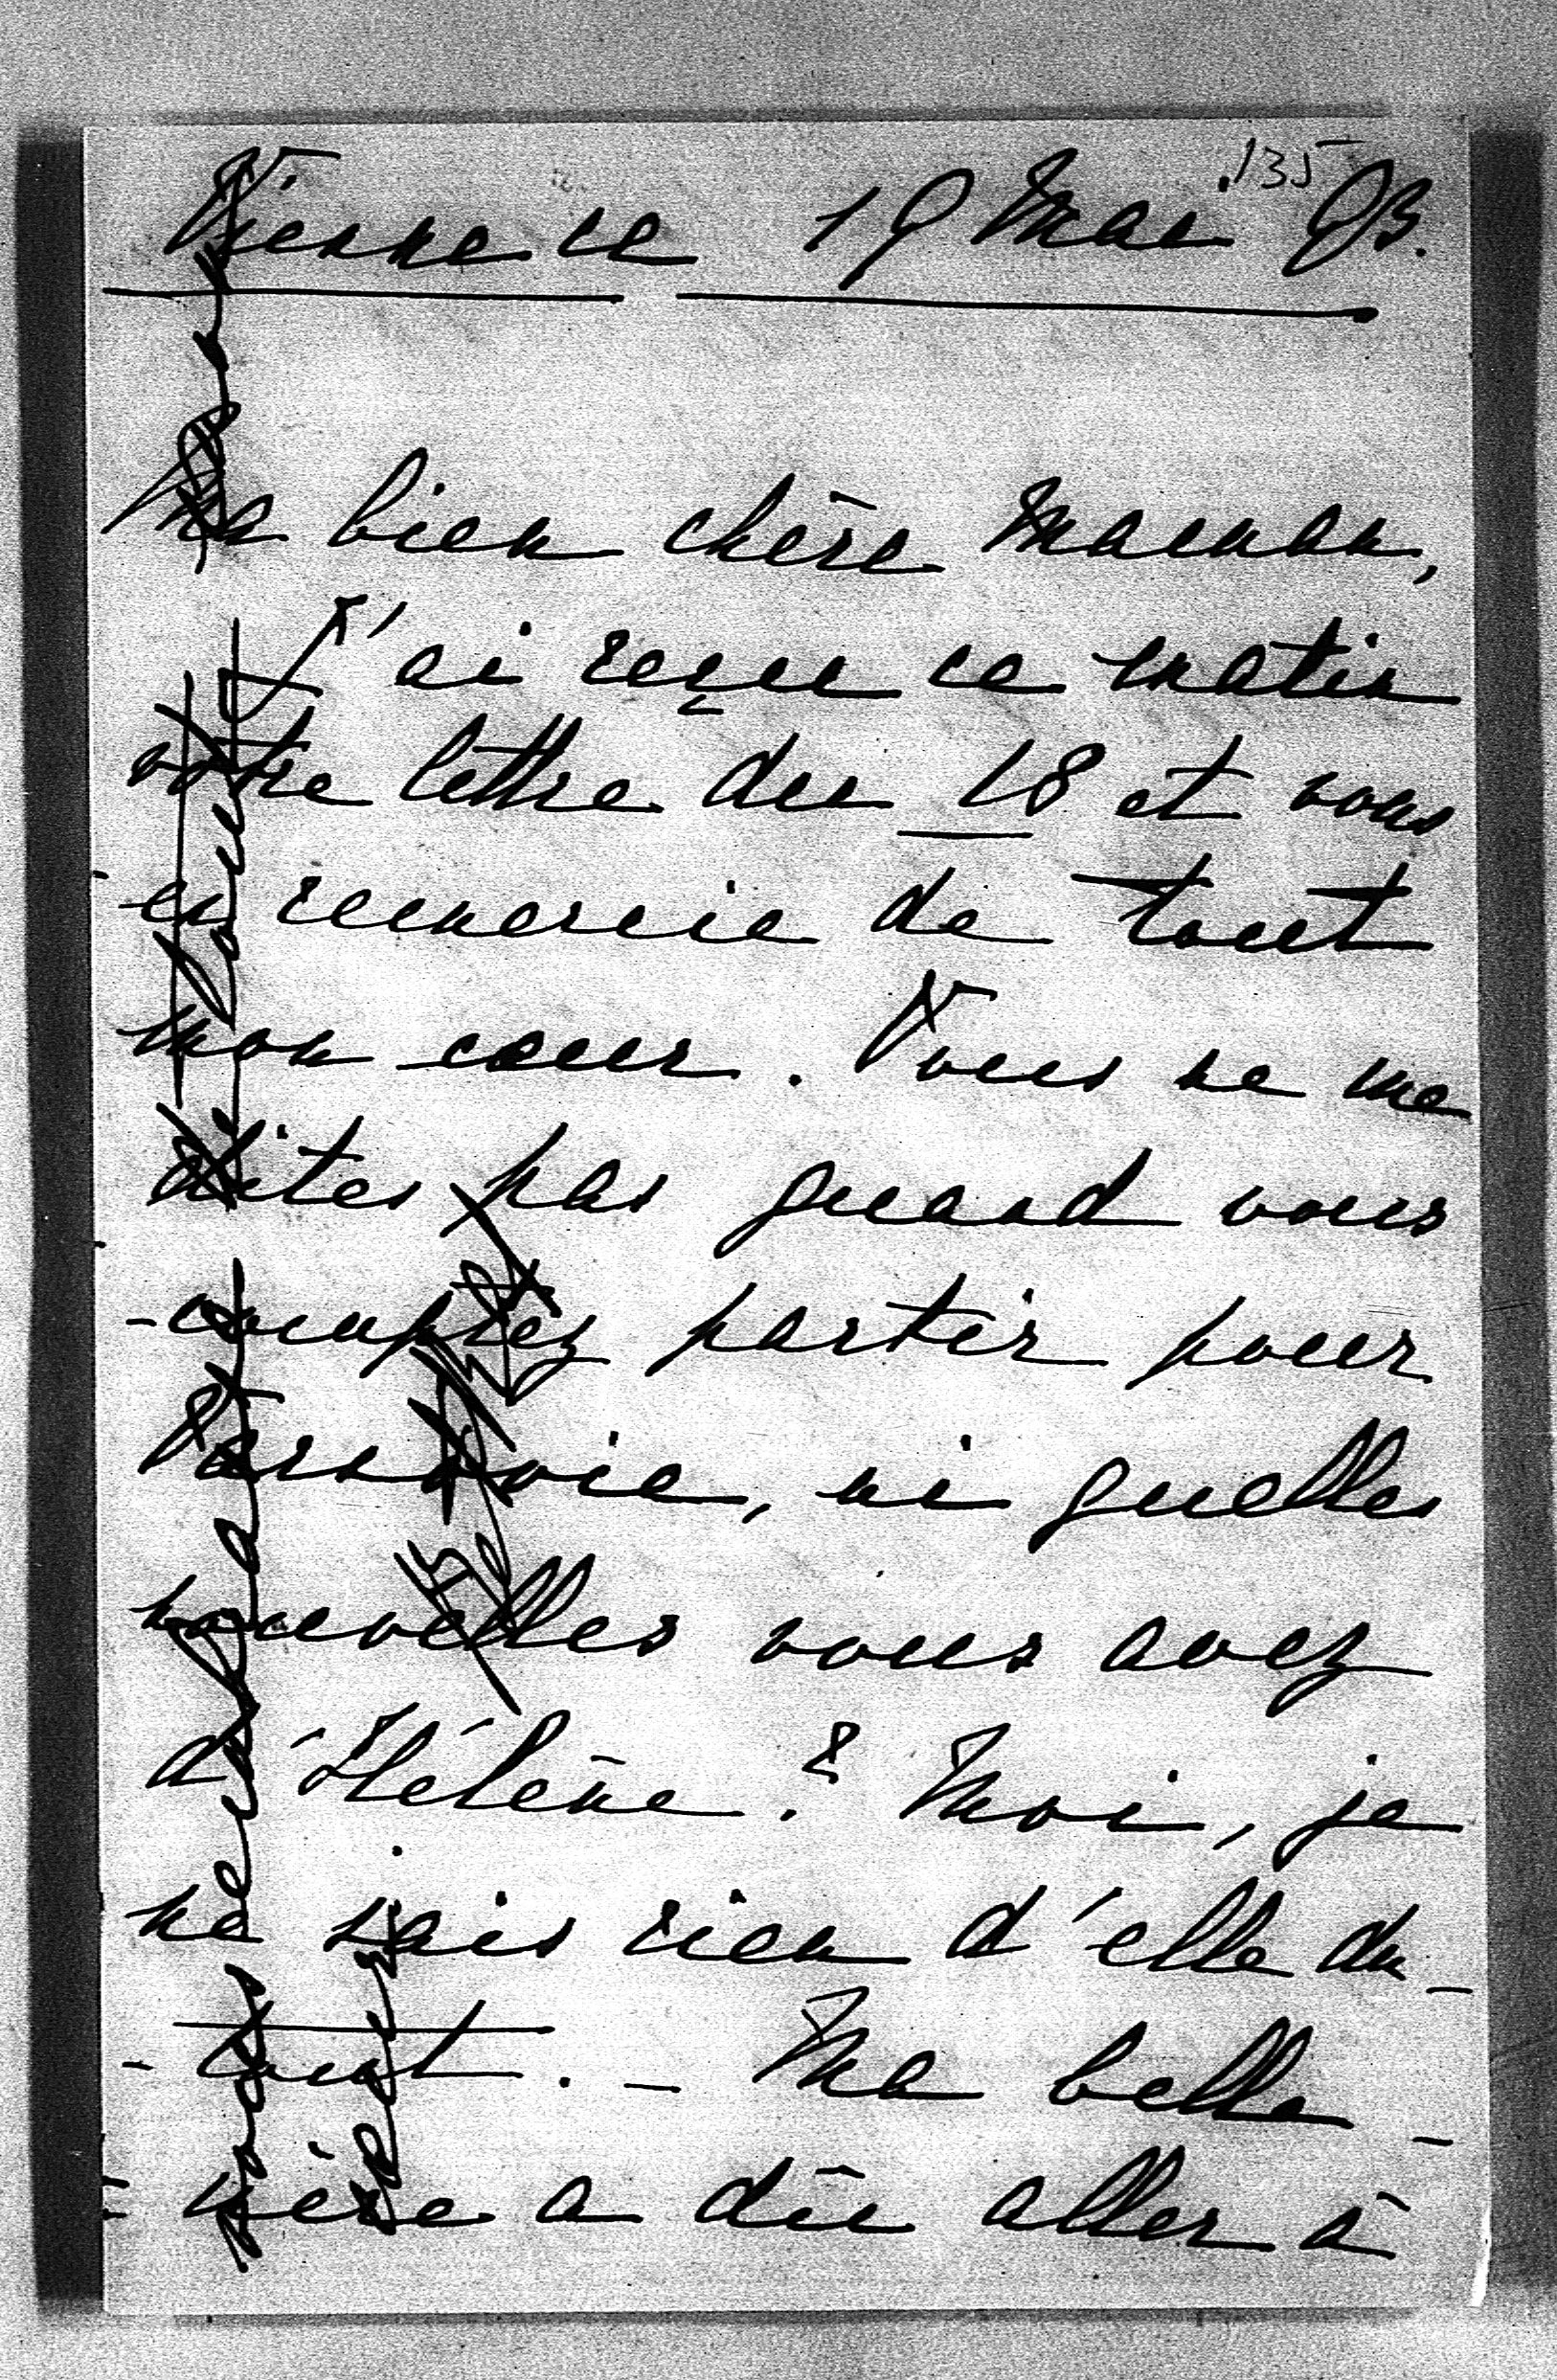 135
Vienne ce 19 Mai 93.
Ma bien chère Maman,
J'ai reçu ce matin
votre lettre du 18 et vous
en remercie de tout
mon cœur. Vous ne me
dites pas quand vous
comptez partir pour
Varsovie, ni quelles
nouvelles vous avez
d'Hélène? Moi, je
ne sais rien d'elle du
- tout. - Ma belle -
- mère a dû aller à